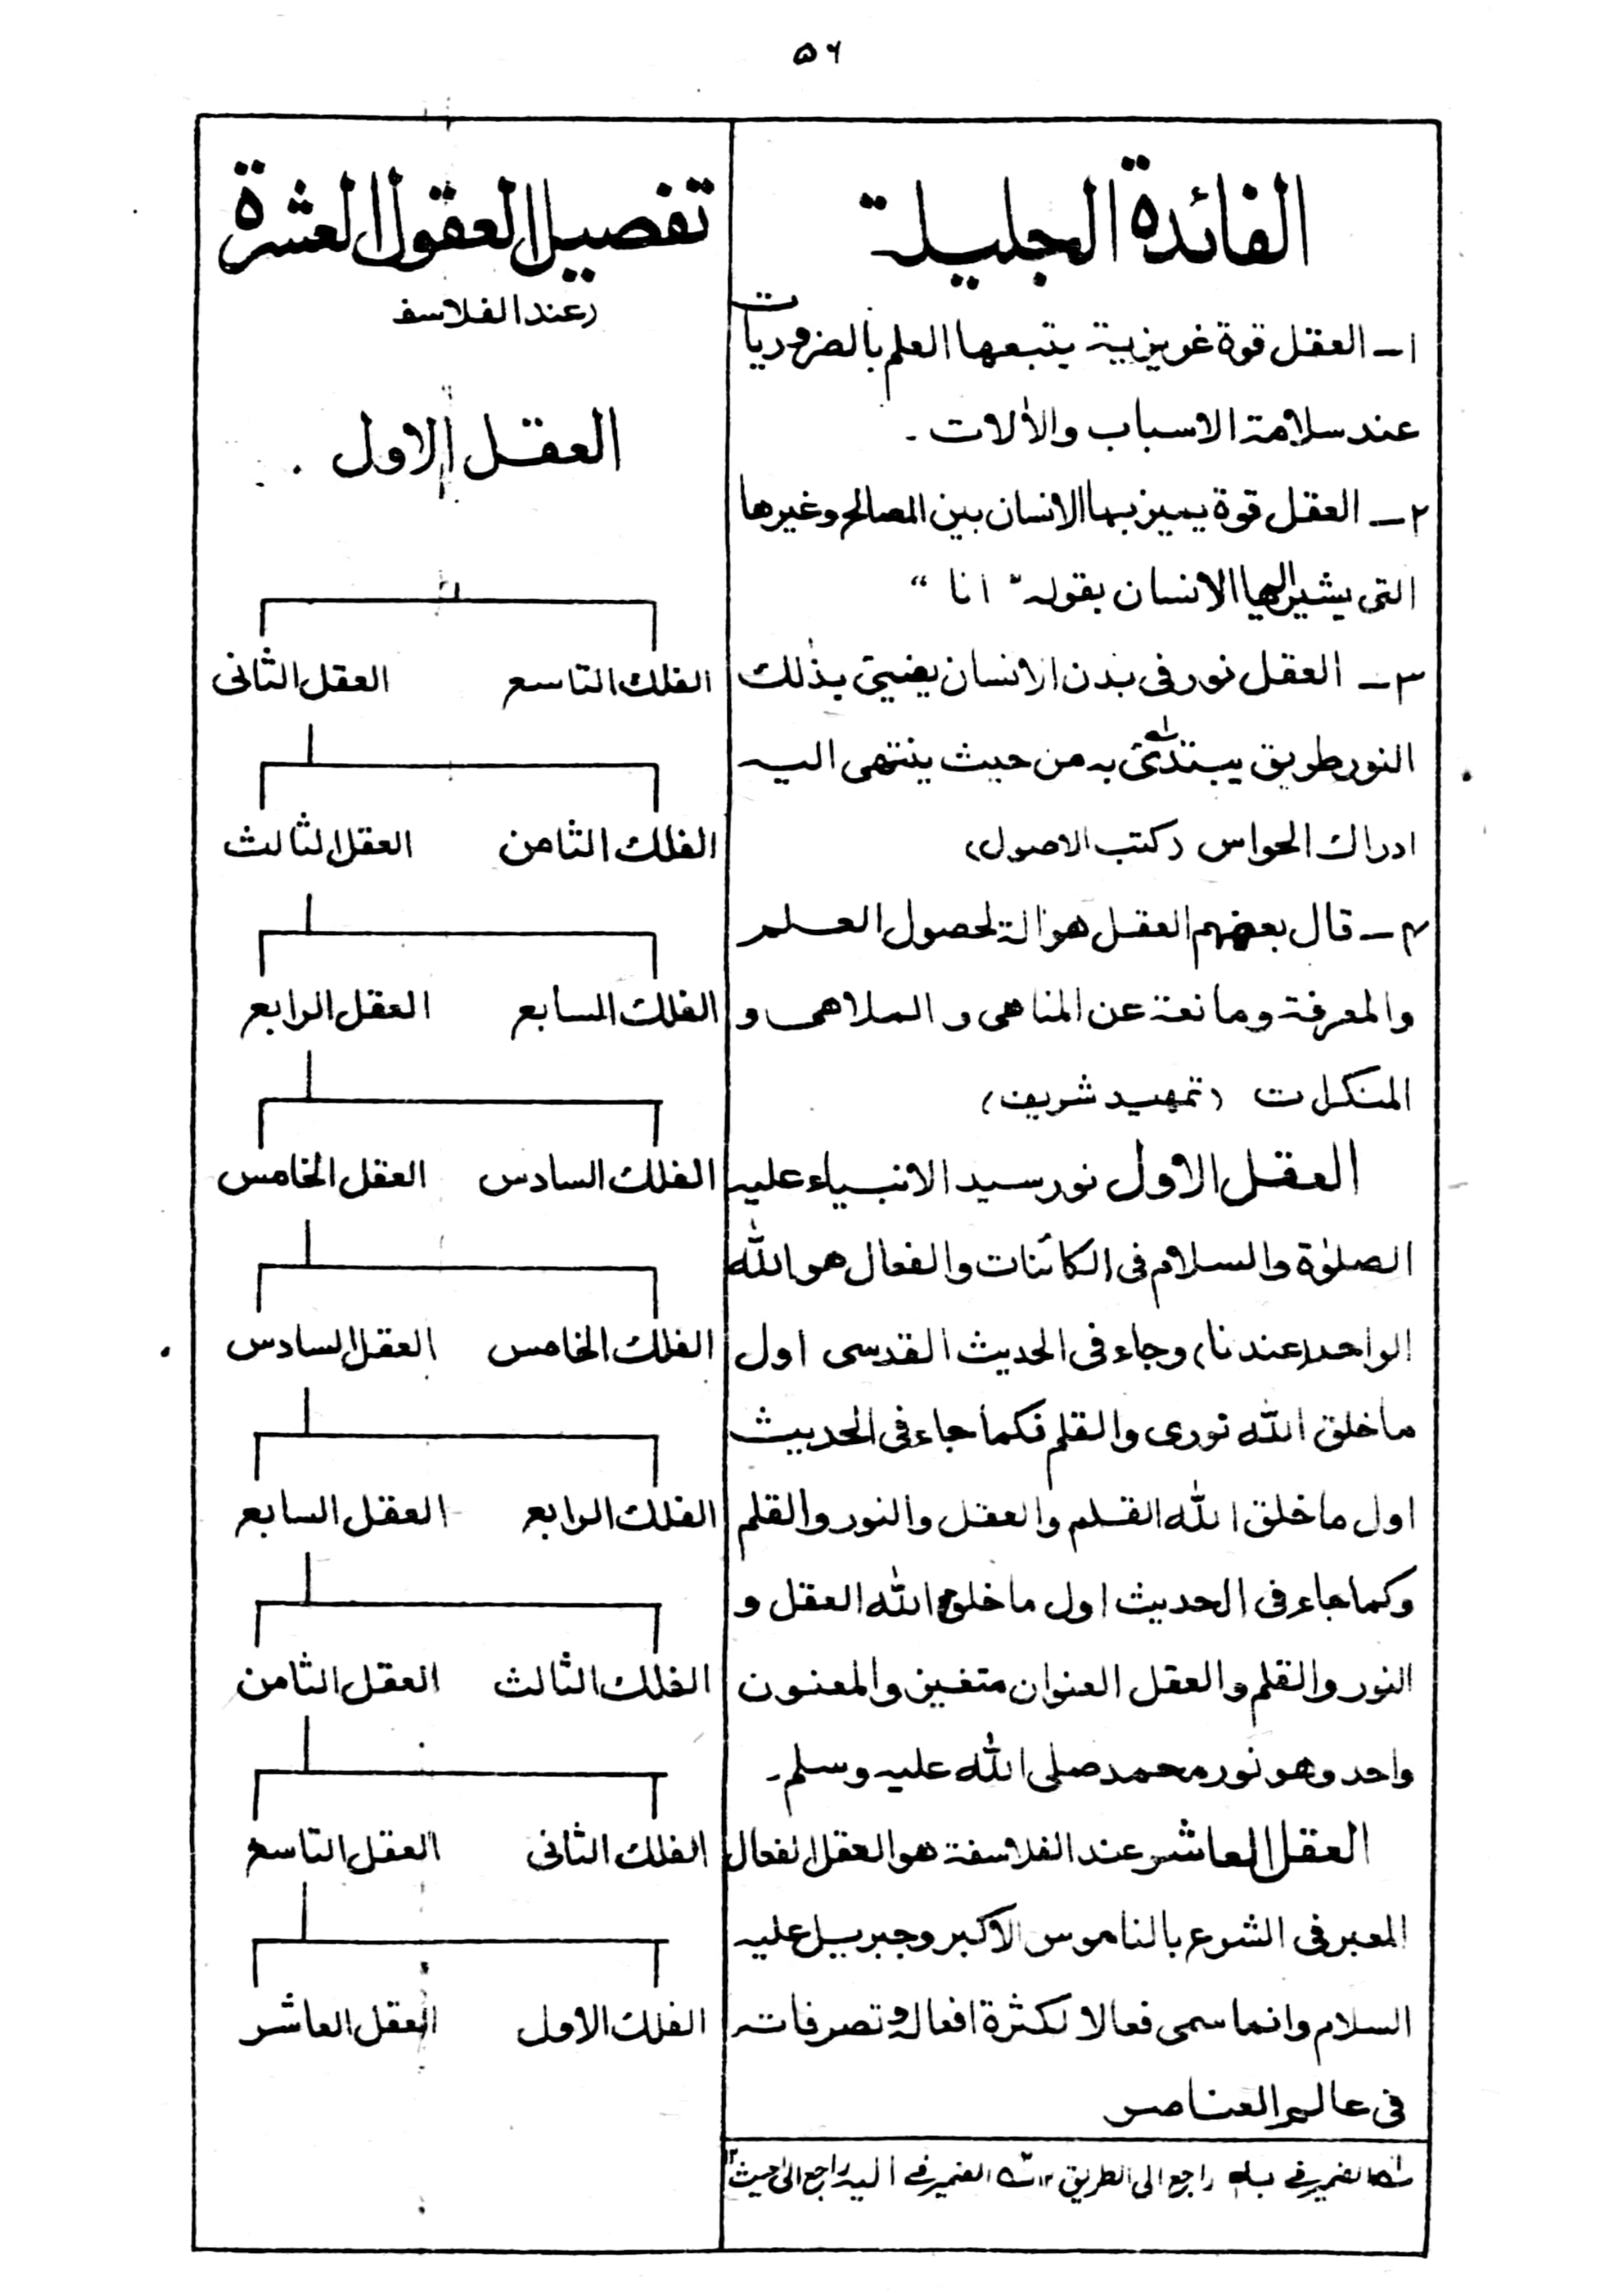 ۵۶
الفائدة الجليلة
١ــ العقل قوة غريزية يتبعها العلم بالضروريات
عند سلامة الاسباب والاٰلات ۔
٢ــ العقل قوة يميز بها الانسان بين المصالح وغيرها
التى يشير اليها الانسان بقوله " انا "
٣ــ العقل نور فى بدن الانسان يضيئ بذٰلك
النور طريق يبتدئ به من حيث ينتهى اليه
ادراك الحواس (كتب الاصول)
۴ــ قال بعضهم العقل هو اٰلة لحصول العلم
والمعرفة ومانعة عن المناهى و الملاهى و
المنكرات (تمهيد شريف)
العقل الاول نور سيد الانبياء عليه
الصلوٰة والسلام فى الكائنات والفعال هو الله
الواحد (عندنا) وجاء فى الحديث القدسى اول
ما خلق الله نورى والقلم فكما جاء فى الحديث
اول ما خلق الله القلم والعقل والنور والقلم
وكما جاء فى الحديث اول ما خلق الله العقل و
النور والقلم والعقل العنوان متغير والمعنون
واحد وهو نور محمد صلى الله عليه وسلم۔
العقل العاشر عند الفلاسفة هو العقل الفعال
المعبر فى الشرع بالناموس الاكبر وجبريل عليه
السلام وانما سمى فعالا لكثرة افعاله وتصرفاته
فى عالم العناصر
الضمير فى به راجع الى الطريق ١٢ الضمير فى اليه راجع الى حيث ١٢
تفصيل العقول العشرة
(عند الفلاسفه
العقل الاول
الفلك التاسع العقل الثانى
الفلك الثامن العقل الثالث
الفلك السابع العقل الرابع
الفلك السادس العقل الخامس
الفلك الخامس العقل السادس
الفلك الرابع العقل السابع
الفلك الثالث العقل الثامن
الفلك الثانى العقل التاسع
الفلك الاول العقل العاشر